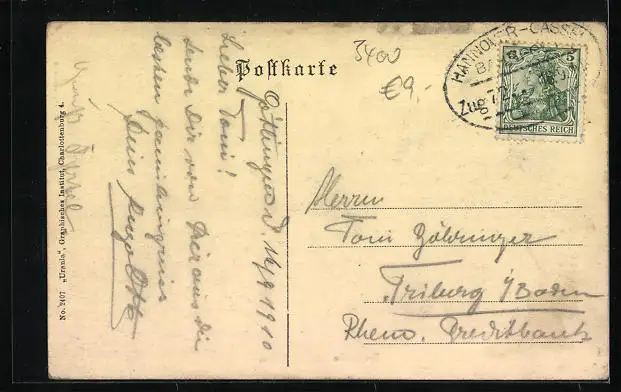 Postkarte
3400
€9,-
HANNOVER-CASSEL
BAHNPOST
Zug
5
DEUTSCHES REICH
Göttingen d. 14/9 1910.
Lieber Toni!
sende Dir von hier aus die
besten
Dein Hugo Otto
Herrn
Toni Zähringer
Triberg i/Baden
Rhein. Creditbank
No. 2407 „Urania", Graphisches Institut, Charlottenburg 4.